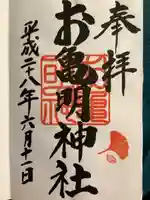 奉拝
お亀明神社
平成二八年六月十一日